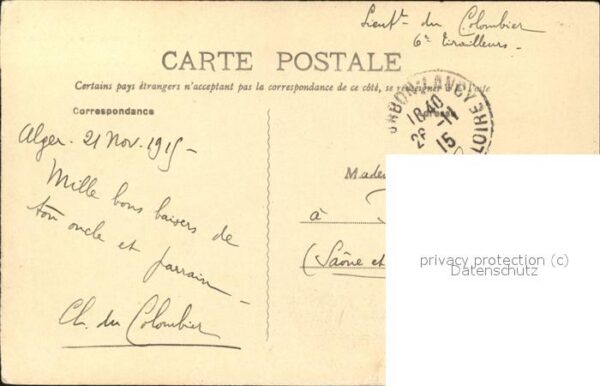 Lieut. du Colombier
6e Tirailleurs -
CARTE POSTALE
Certains pays étrangers n'acceptant pas la correspondance de ce côté, se
Correspondance
Alger. 21 Nov. 1915 -
Mille bons baisers de
ton oncle et parrain -
Ch. du Colombier
BOURBON-LANCY
18 40
26 -11
15
à
(Saône et
privacy protection (c)
Datenschutz